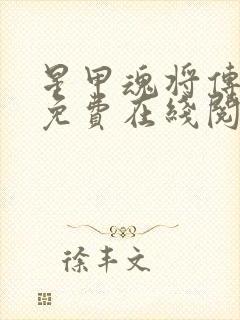 星甲魂将傳
免費在綫閱
徐丰文